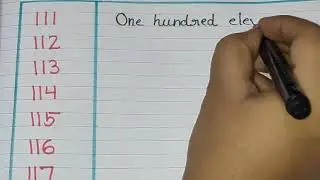 111 One hundred elev
112
113
114
115
116
117